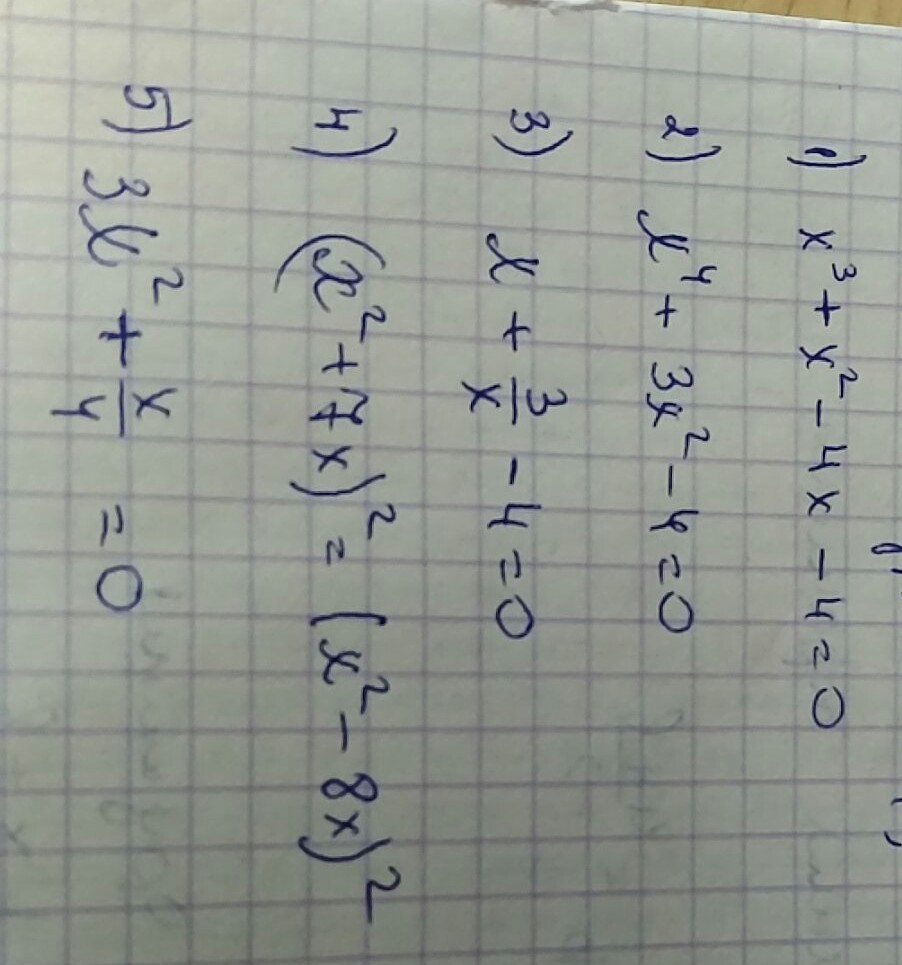 1) x³ + x² - 4x - 4 = 0
2) x⁴ + 3x² - 4 = 0
3) x + 3/x - 4 = 0
4) (x² + 7x)² = (x² - 8x)²
5) 3x² + x/4 = 0